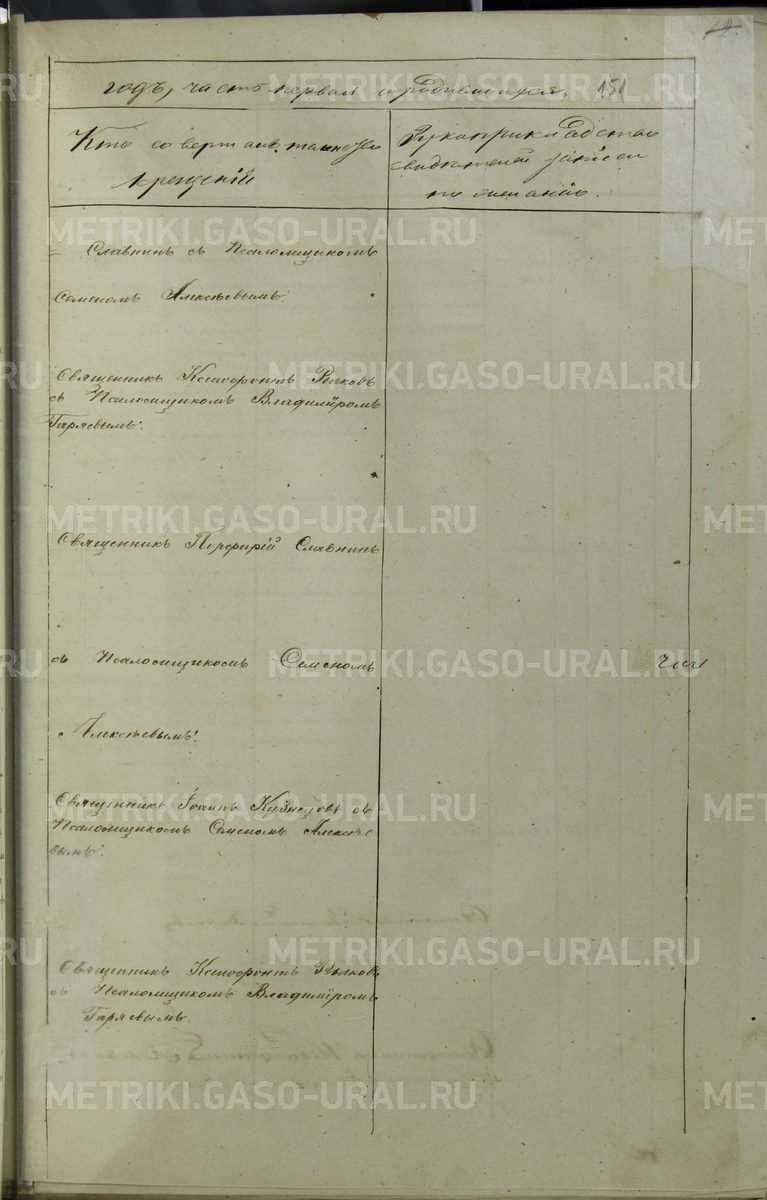 годъ, часть первая о родившихся. 151
Кто совершалъ таинство
крещенiй
Рукоприкладство
свидѣтелей записи
по желанію.
= Славнинъ съ Псаломщикомъ
Семеномъ Алексѣевымъ.
Священникъ Ксенофонтъ Рычковъ
съ Псаломщикомъ Владиміромъ
Гаряевымъ.
Священникъ Порфирій Славнинъ
съ Псаломщикомъ Семеномъ
Алексѣевымъ.
Священникъ Іоаннъ Кузнецовъ съ
Псаломщикомъ Семеномъ Алексѣе
вымъ.
Священникъ Ксенофонтъ Рычковъ
съ Псаломщикомъ Владиміромъ
Гаряевымъ.
METRIKI.GASO-URAL.RU